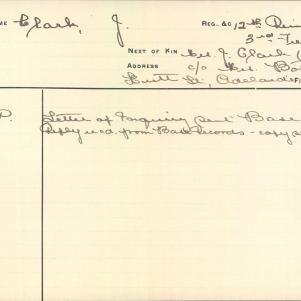 ME Clark, J. REG. &C 12th Rein
3rd
NEXT OF KIN Mr. J. Clark (
ADDRESS c/o Mr. Bo
St, Adelaide
P. Letter of Enquiry sent Base
Reply recd. from Base Records - copy se